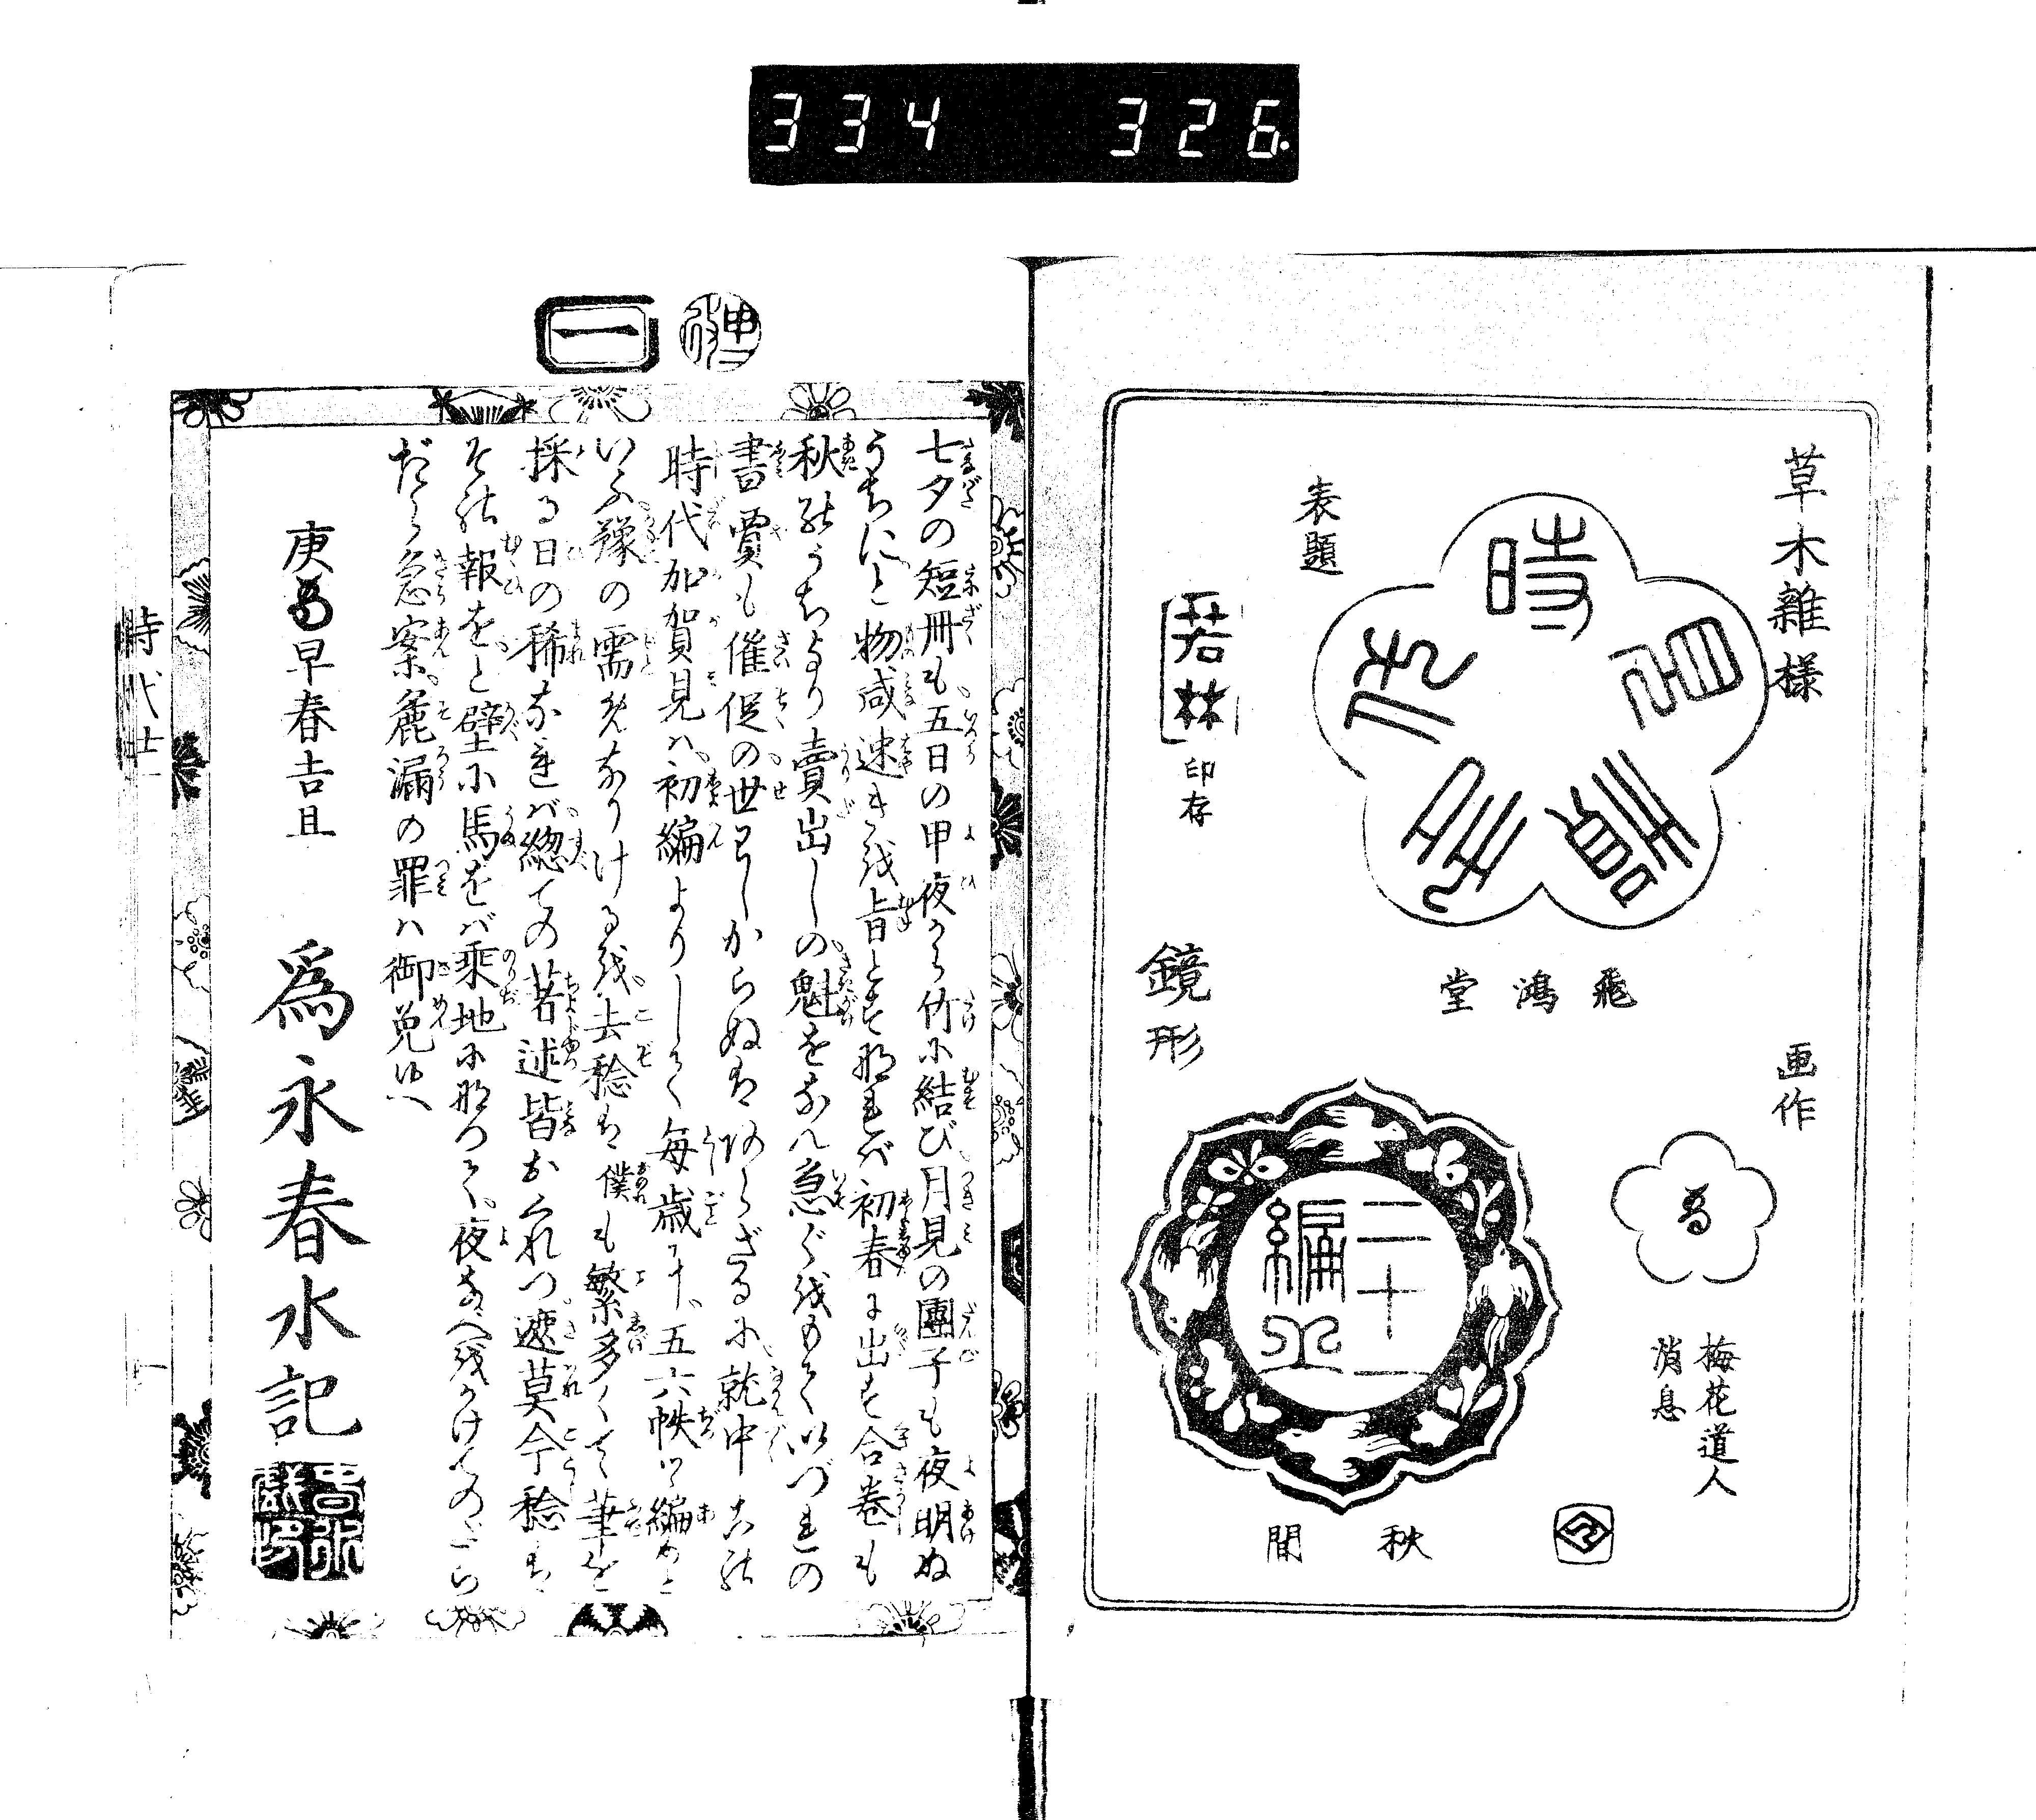 334 326
草木雑様
画作
時
見
賀
表題
若林
印存
飛鴻堂
鏡形
梅花道人
消息
二十一
編上
秋間
一
七夕の短冊も五日の甲夜から竹に結び月見の團子も夜明ぬ
うちにと物咸速きを旨とする那れば初春に出す合巻も
秋のうちより賣出しの魁をなん急ぐをもて以づれの
書賈も催促の世わしからぬはあらざるに就中この
時代加賀見ハ初編よりして毎歳に五六帙づゝ編めと
いふ豫の需めなりけるを去稔は僕も繁多くて筆を
採る日の稀なれば總ての著述皆おくれつ遮莫今稔は
その報をと壁に馬をば乗地に那つて夜なべをかけてのざら
だら急案麁漏の罪ハ御免候へ
庚 早春吉旦
為永春水記
時代 廿一